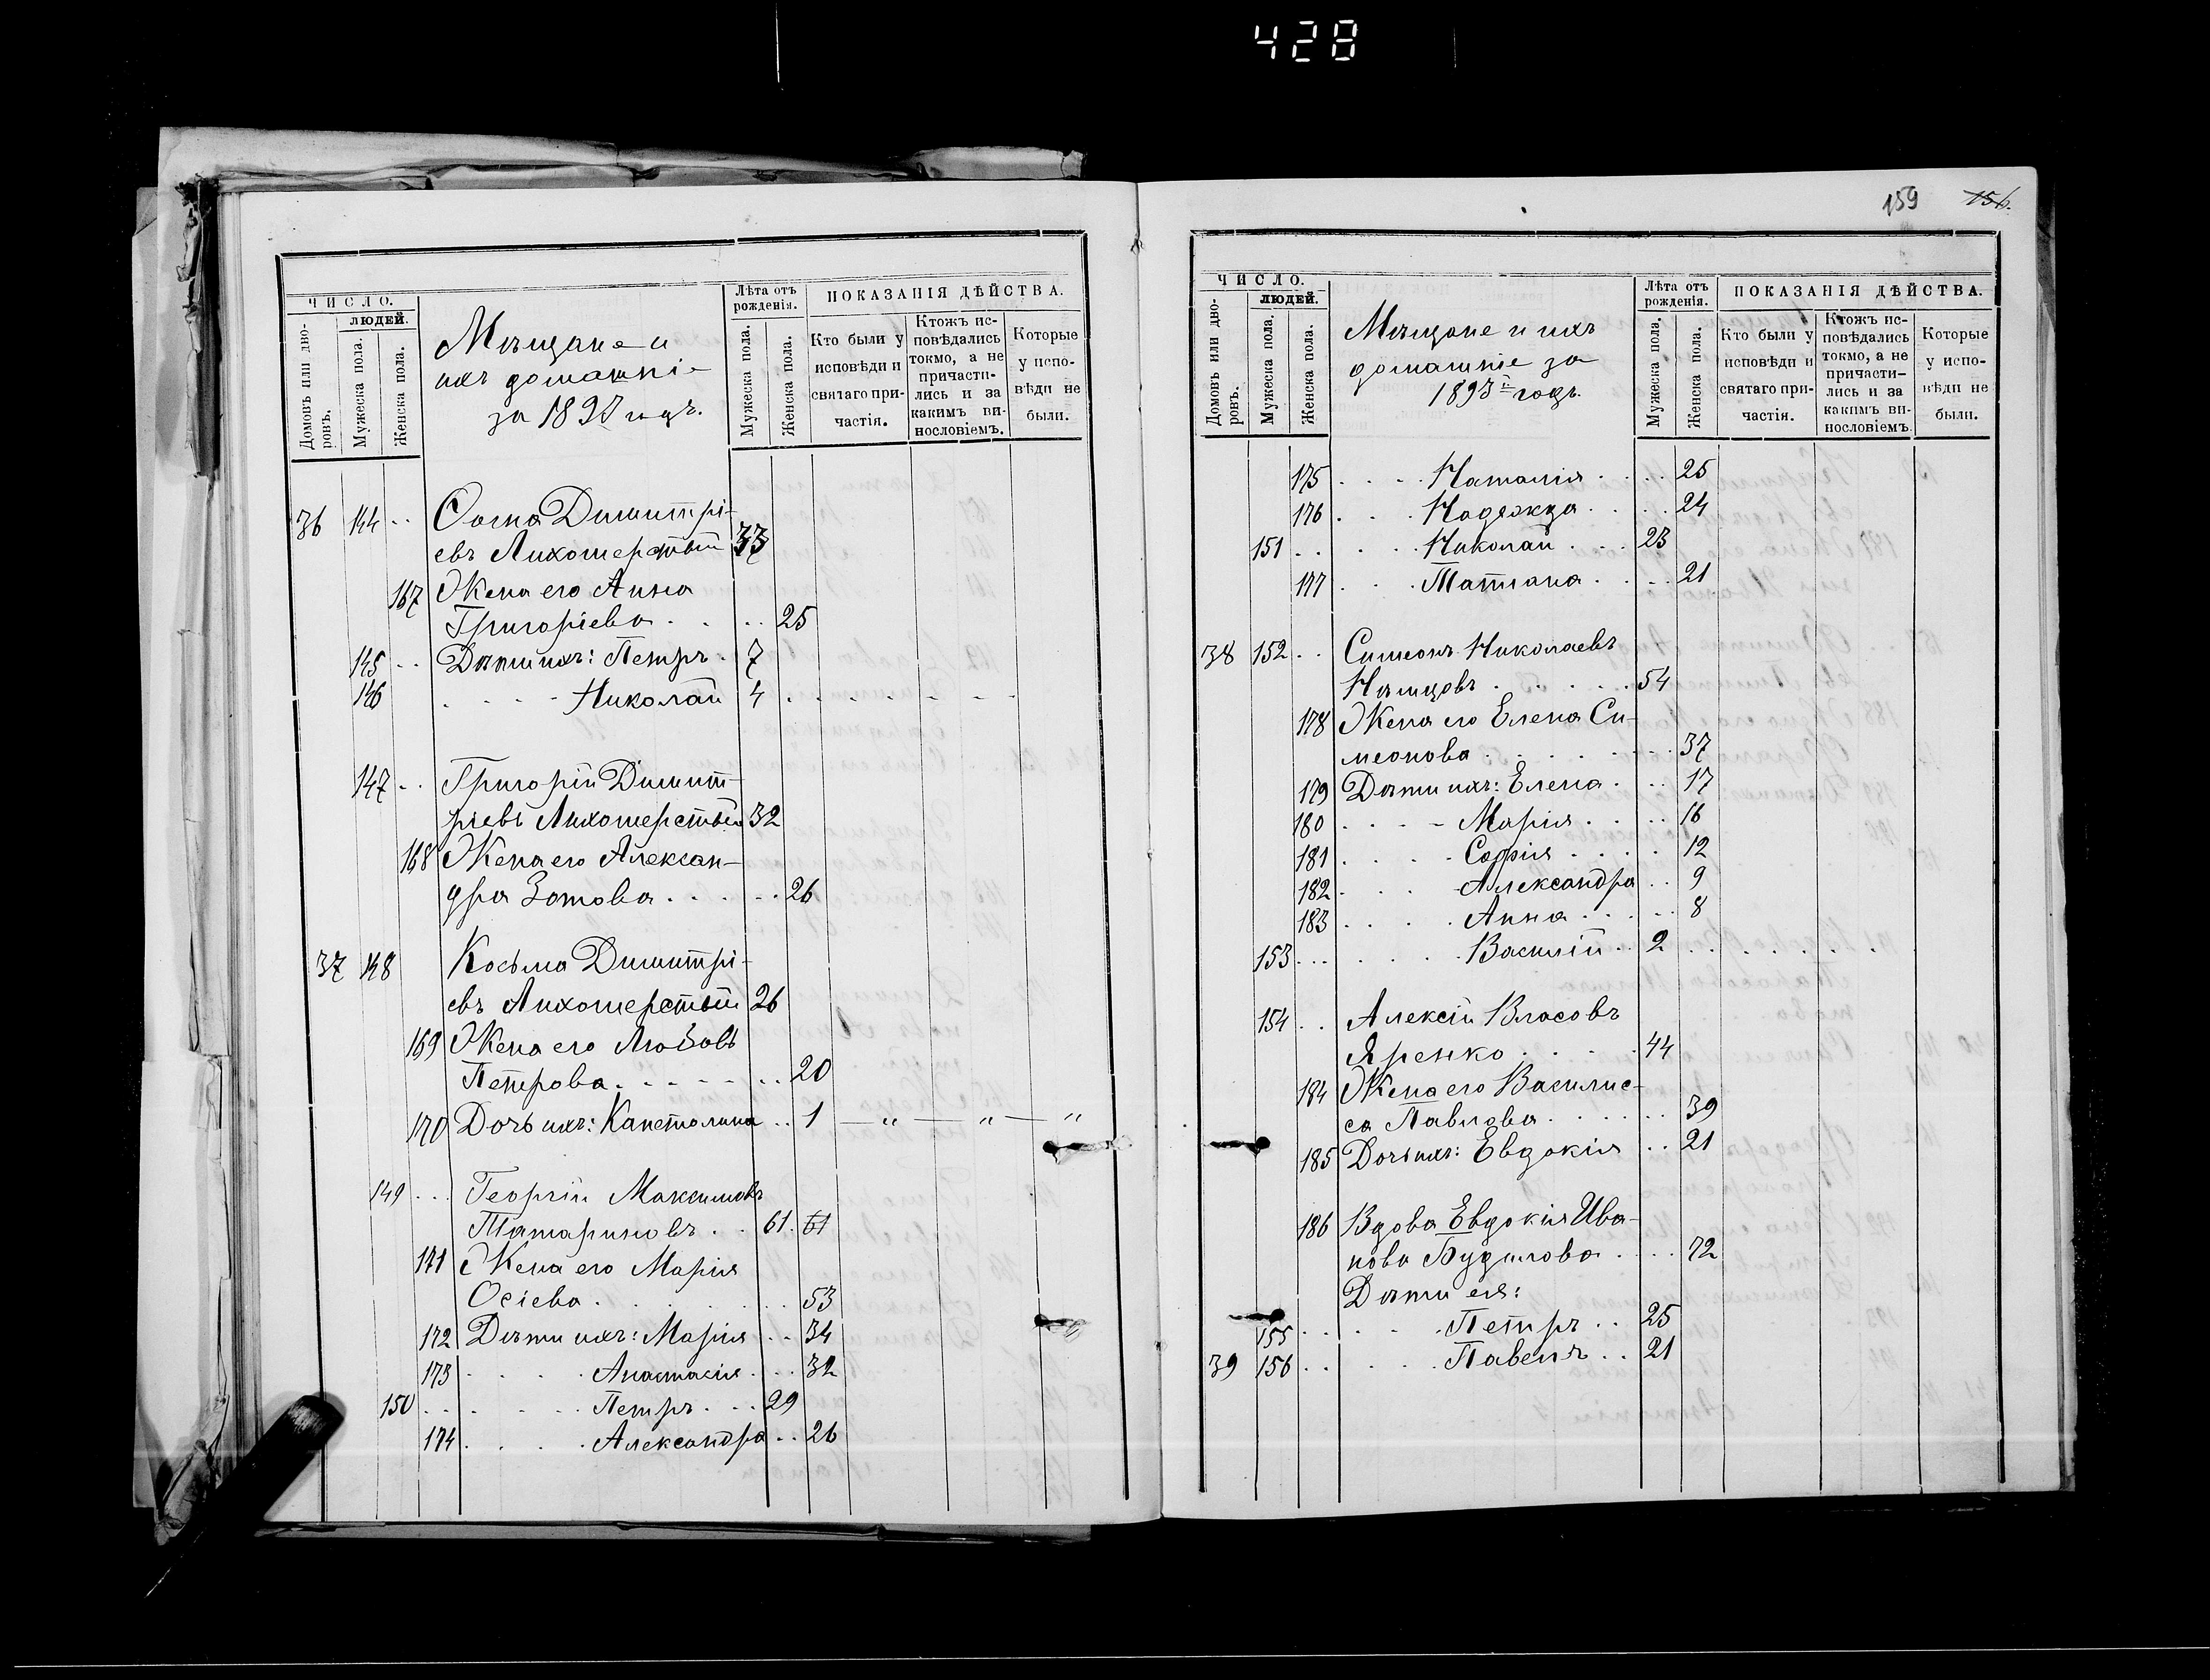 428
ЧИСЛО.
Домовъ или дворовъ.
ЛЮДЕЙ.
Мужеска пола.
Женска пола.
Мѣщане и
ихъ домашніе
за 1893 годъ.
Лѣта отъ рожденія.
Мужеска пола.
Женска пола.
ПОКАЗАНІЯ ДѢЙСТВА.
Кто были у
исповѣди и
святаго при-
частія.
Ктожъ ис-
повѣдались
токмо, а не
причасти-
лись и за
какимъ ви-
нословіемъ.
Которые
у испо-
вѣди не
были.
36 144 .. Ѳома Димитрі-
евъ Лихошерстый 33
167 Жена его Анна
Григоріева . . .. 25
145 .. Дѣти ихъ: Петръ . 7
146 . - . - Николай 4 . . . . - - -
147 .. Григорій Димит-
ріевъ Лихошерстый 32
168 Жена его Алексан-
дра Зотова . . . .. 26
37 148 Косьма Димитрі-
евъ Лихошерстый 26
169 Жена его Любовь
Петрова . - - - - - .. 20
170 Дочь ихъ: Капетолина .. 1 — " — " — "
149 ... Георгій Максимовъ
Татариновъ . . 61. 61
171 Жена его Марія
Осіева . . . . . .. 53
172 Дѣти ихъ: Марія .. 34
173 . . . . Анастасія . .. 32
150 .. . . . . Петръ . .. 29
174 . . . . Александра .. 26
159 156.
ЧИСЛО.
Домовъ или дворовъ.
ЛЮДЕЙ.
Мужеска пола.
Женска пола.
Мѣщане и ихъ
домашніе за
1893й годъ.
Лѣта отъ рожденія.
Мужеска пола.
Женска пола.
ПОКАЗАНІЯ ДѢЙСТВА.
Кто были у
исповѣди и
святаго при-
частія.
Ктожъ ис-
повѣдались
токмо, а не
причасти-
лись и за
какимъ ви-
нословіемъ.
Которые
у испо-
вѣди не
были.
175 . . . . Наталія . . .. 25
176 . . . Надежда . . .. 24
151 .. . . . Николай . . . 23
177 . . . Татіана . . .. 21
38 152 .. Симеонъ Николаевъ
Нѣмцовъ . . . . . 54
178 Жена его Елена Си-
меонова . . . . . .. 37
179 Дѣти ихъ: Елена . .. 17
180 . . . - Марія . . .. 16
181 . . . . Софія . . . . 12
182 . . . - Александра .. 9
183 . . . . Анна . . .. 8
153 ... . . . . Василій .. 2 .. . . . . . .
154 .. Алексій Власовъ
Яренко . . . . 44
184 Жена его Василис-
са Павлова . . . .. 39
185 Дочь ихъ: Евдокія .. 21
186 Вдова Евдокія Ива-
нова Будилова . .. 72
Дѣти ея:
155 .. . . . Петръ .. 25
39 156 .. . . . Павелъ .. 21